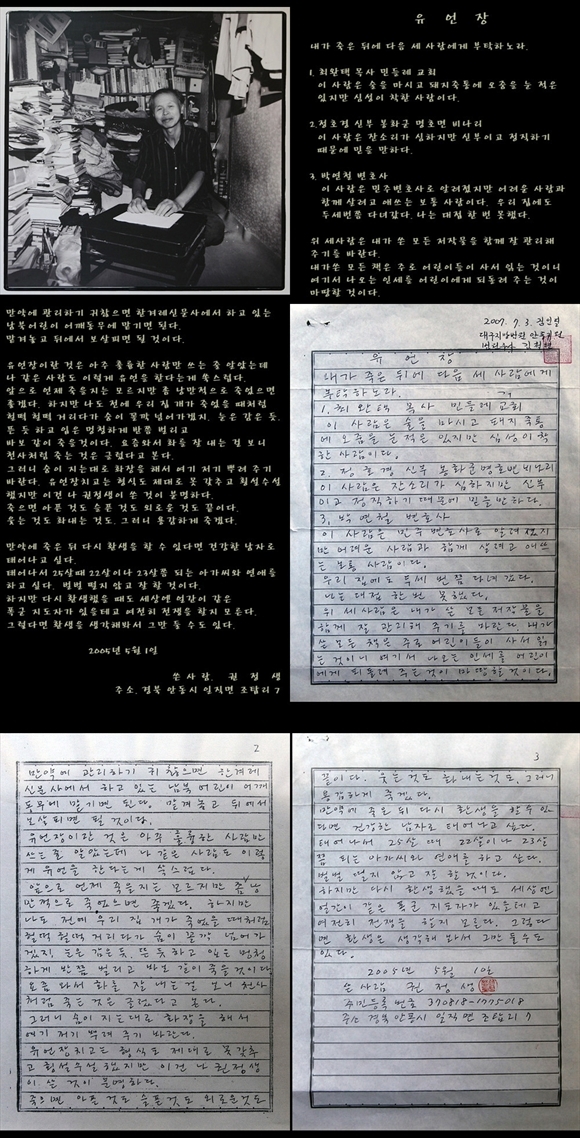 유 언 장
내가 죽은 뒤에 다음 세 사람에게 부탁하노라.
1. 최완택 목사 민들레 교회
이 사람은 술을 마시고 돼지죽통에 오줌을 눈 적은
있지만 심성이 착한 사람이다.
2. 정호경 신부 봉화군 명호면 비나리
이 사람은 잔소리가 심하지만 신부이고 정직하기
때문에 믿을 만하다.
3. 박연철 변호사
이 사람은 민주변호사로 알려졌지만 어려운 사람과
함께 살려고 애쓰는 보통 사람이다. 우리 집에도
두세번쯤 다녀갔다. 나는 대접 한 번 못했다.
위 세사람은 내가 쓴 모든 저작물을 함께 잘 관리해
주기를 바란다.
내가쓴 모든 책은 주로 어린이들이 사서 읽는 것이니
여기서 나오는 인세를 어린이에게 되돌려 주는 것이
마땅할 것이다.
만약에 관리하기 귀찮으면 한겨레신문사에서 하고 있는
남북어린이 어깨동무에 맡기면 된다.
맡겨놓고 뒤에서 보살피면 될 것이다.
유언장이란 것은 아주 훌륭한 사람만 쓰는 줄 알았는데
나 같은 사람도 이렇게 유언을 한다는게 쑥스럽다.
앞으로 언제 죽을지는 모르지만 좀 낭만적으로 죽었으면
좋겠다. 하지만 나도 전에 우리 집 개가 죽었을 때처럼
헐떡 헐떡 거리다가 숨이 꼴깍 넘어가겠지. 눈은 감은 듯,
뜬 듯 하고 입은 멍청하게 반쯤 벌리고
바보 같이 죽을것이다. 요즘와서 화를 잘 내는 걸 보니
천사처럼 죽는 것은 글렀다고 본다.
그러니 숨이 지는대로 화장을 해서 여기 저기 뿌려 주기
바란다. 유언장치고는 형식도 제대로 못 갖추고 횡설수설
했지만 이건 나 권정생이 쓴 것이 분명하다.
죽으면 아픈 것도 슬픈 것도 외로운 것도 끝이다.
웃는 것도 화내는 것도. 그러니 용감하게 죽겠다.
만약에 죽은 뒤 다시 환생을 할 수 있다면 건강한 남자로
태어나고 싶다.
태어나서 25살때 22살이나 23살쯤 되는 아가씨와 연애를
하고 싶다. 벌벌 떨지 않고 잘 할 것이다.
하지만 다시 환생했을 때도 세상엔 얼간이 같은
폭군 지도자가 있을테고 여전히 전쟁을 할지 모른다.
그렇다면 환생을 생각해봐서 그만 둘 수도 있다.
2005년 5월 1일
쓴 사람. 권 정 생
주소. 경북 안동시 일직면 조탑리 7
2007. 7. 3. 검인필
대구지방법원 안동지원
유 언 장
내가 죽은 뒤에 다음 세 사람에게
부탁하노라.
1. 최 완 택 목사 민들레 교회
이 사람은 술을 마시고 돼지 죽통
에 오줌을 눈 적은 있지만 심성이 착
한 사람이다.
2. 정 호 경 신부 봉화군 명호면 비나리
이 사람은 잔소리가 심하지만 신부
이고 정직하기 때문에 믿을 만하다.
3. 박 연철 변호사
이 사람은 민주 변호사로 알려졌지
만 어려운 사람과 함께 살려고 애쓰
는 보통 사람이다.
우리 집에도 두세 번쯤 다녀갔다.
나는 대접 한 번 못했다.
위 세 사람은 내가 쓴 모든 저작물을
함께 잘 관리해 주기를 바란다. 내가
쓴 모든 책은 주로 어린이들이 사서 읽
는 것이니 여기서 나오는 인세를 어린이
에게 되돌려 주는 것이 마땅할 것이다.
2
만약에 관리하기 귀찮으면 한겨레
신문사에서 하고 있는 남북 어린이 어깨
동무에 맡기면 된다. 맡겨놓고 뒤에서
보살피면 될 것이다.
유언장이란 것은 아주 훌륭한 사람만
쓰는 줄 알았는데 나 같은 사람도 이렇
게 유언을 한다는 게 쑥스럽다.
앞으로 언제 죽을지는 모르지만 좀 낭
만적으로 죽었으면 좋겠다. 하지만
나도 전에 우리 집 개가 죽었을 때처럼
헐떡 헐떡 거리다가 숨이 꼴깍 넘어가
겠지. 눈은 감은 듯 뜬 듯 하고 입은 멍청
하게 반쯤 벌리고 바보 같이 죽을 것이다.
요즘 와서 화를 잘 내는 걸 보니 천사
처럼 죽는 것은 글렀다고 본다.
그러니 숨이 지는대로 화장을 해서
여기 저기 뿌려 주기 바란다.
유언장치고는 형식도 제대로 못 갖추
고 횡설수설 했지만 이건 나 권정생
이 쓴 것이 분명하다.
죽으면 아픈 것도 슬픈 것도 외로운 것도
3
끝이다. 웃는 것도 화내는 것도. 그러니
용감하게 죽겠다.
만약에 죽은 뒤 다시 환생을 할 수 있
다면 건강한 남자로 태어나고 싶다.
태어나서 25살 때 22살이나 23살
쯤 되는 아가씨와 연애를 하고 싶다.
벌벌 떨지 않고 잘 할 것이다.
하지만 다시 환생했을 때도 세상엔
얼간이 같은 폭군 지도자가 있을테고
여전히 전쟁을 할지 모른다. 그렇다
면 환생은 생각해 봐서 그만 둘 수도
있다.
2005년 5월 1일
쓴 사람 권 정 생
주민등록 번호 370818-1775018
주소 경북 안동시 일직면 조탑리 7